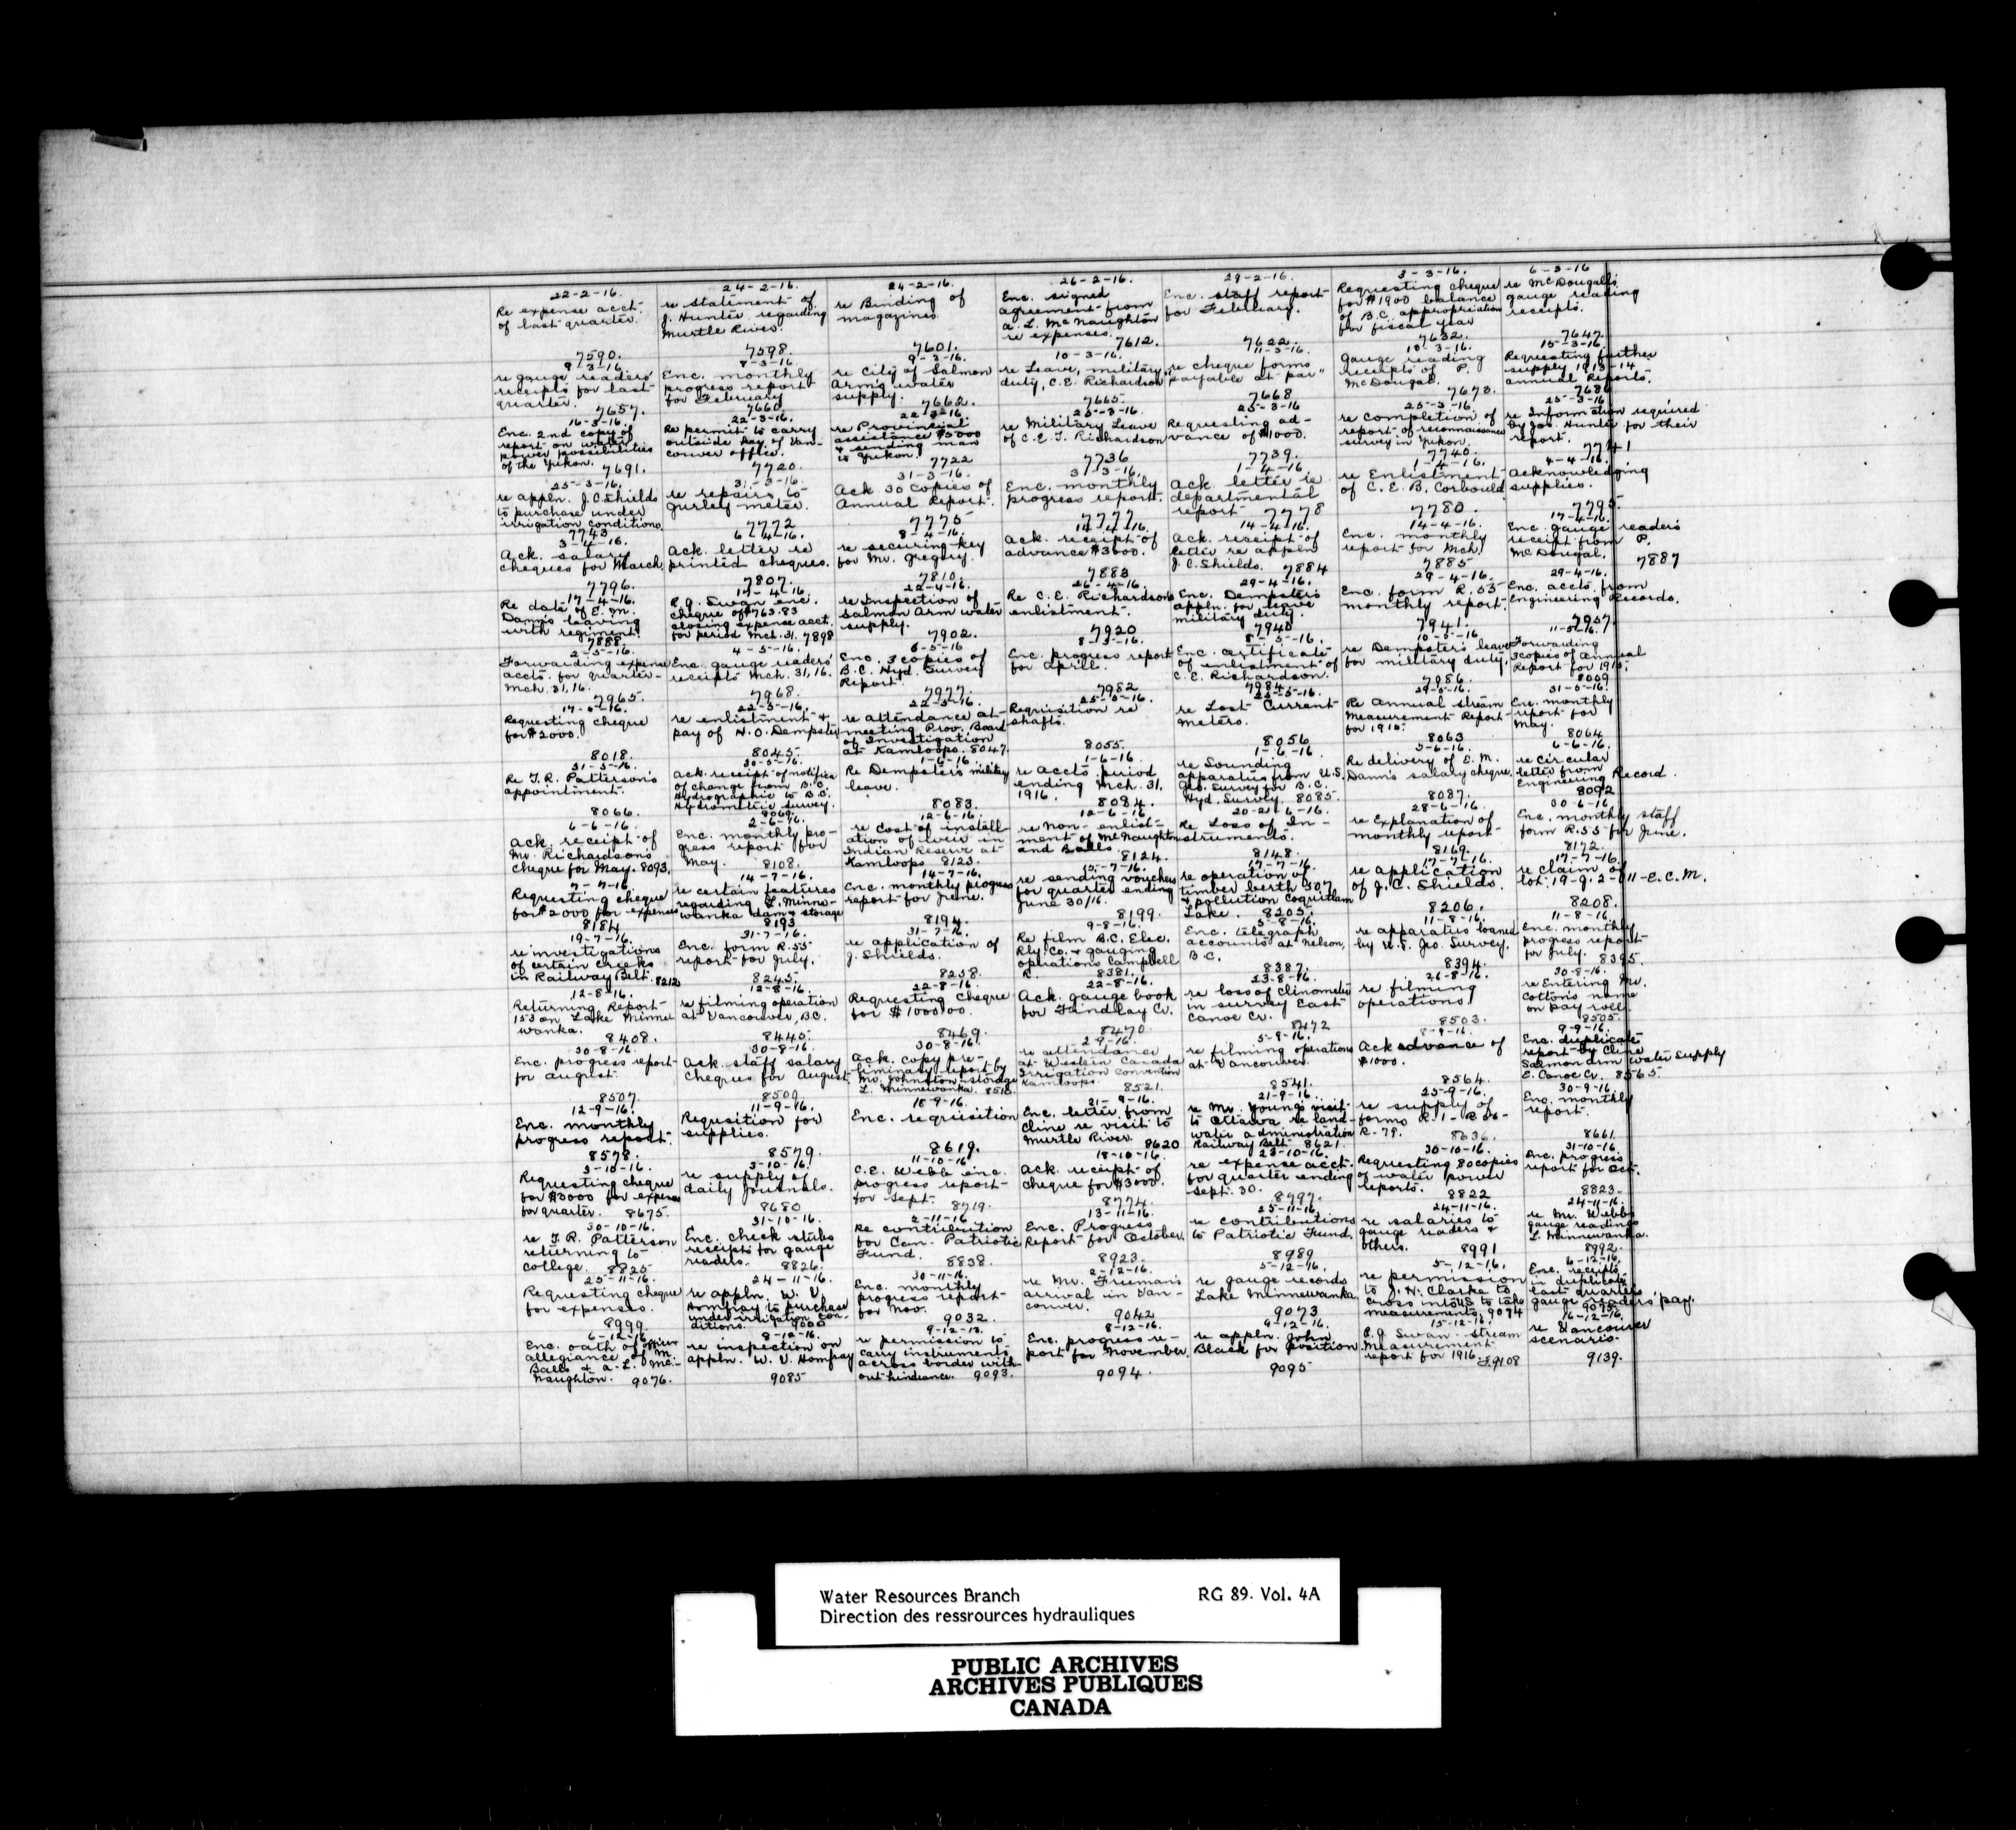 22-2-16.
Re expense acct.
of last quarter.
7590.
24-2-16.
re statement of
J. Hunter regarding
Murtle River.
7598.
24-2-16.
re Binding of
magazines
7601.
26-2-16.
Enc. signed
agreement from
A. L. McNaughton
re expenses.
7612.
29-2-16.
Enc. staff report
for February.
7622.
3-3-16.
Requesting cheque
for $1900 balance
of B.C. appropriation
for fiscal year
7632.
6-3-16
re McDougall's
gauge reading
receipts.
7647.
9-3-16.
re gauge readers'
receipts for last
quarter.
7657.
8-3-16.
Enc. monthly
progress report
for February
7660
9-3-16.
re City of Salmon
Arm's water
supply.
7662.
10-3-16.
re Leave, military
duty, C.E. Richardson
7665.
11-3-16.
re cheque forms
"payable at par"
7668
13-3-16.
Gauge reading
receipts of P.
McDougal.
7673.
15-3-16.
Requesting further
supply 1913-14
annual Reports.
16-3-16.
Enc. 2nd copy of
report on water
power possibilities
of the Yukon.
7691.
22-3-16.
Re permit to carry
outside Bay of Van-
couver office.
7720.
22-3-16.
re Provincial
assistance $5000
& sending man
to Yukon.
7722
23-3-16.
re Military Leave
of C.E.J. Richardson
7736
25-3-16
Requesting ad-
vance of $1000.
7739.
25-3-16.
re completion of
report of reconnaissance
survey in Yukon.
7740.
25-3-16
re Information required
by Jos. Hunter for their
report.
7741
25-3-16.
re appln. J.C. Shields
to purchase under
irrigation conditions.
7743
31-3-16.
re repairs to
Gurley meter.
7772
31-3-16.
Ack 30 copies of
Annual Report.
7775
31-3-16.
Enc. monthly
progress report.
7777
1-4-16.
Ack. letter re
departmental
report
7778
1-4-16.
re Enlistment
of C. E. B. Corbould
7780.
4-4-16.
Acknowledging
supplies.
7795.
3-4-16.
Ack. salary
cheques for March.
7796.
6-4-16.
Ack. letter re
printed cheques.
7807.
8-4-16.
re securing key
for Mr. Gregory.
7810.
14-4-16.
Ack. receipt of
advance $3000.
7883
14-4-16.
Ack. receipt of
letter re appln
J. C. Shields.
7884
14-4-16.
Enc. monthly
report for Mch.
7885
17-4-16.
Enc. gauge readers
receipt from P.
McDougal.
7887
17-4-16.
Re date of E. M.
Dann's leaving
with regiment.
7888.
17-4-16.
R.G. Swan enc.
cheque of $763.83
closing expense acct.
for period Mch. 31.
7898
22-4-16.
re Inspection of
Salmon Arm water
supply.
7902.
26-4-16.
Re C. E. Richardson's
enlistment.
7920
29-4-16.
Enc. Dempster's
appln. for leave
military duty.
7940
29-4-16.
Enc. form R.55
monthly report.
7941.
29-4-16.
Enc. accts from
Engineering Records.
7957
2-5-16.
Forwarding expense
accts. for quarter
Mch. 31, 16.
7965.
4-5-16.
Enc. gauge readers'
receipts Mch. 31, 16.
7968.
6-5-16
Enc. 3 copies of
B.C. Hyd. Survey
Report.
7977.
8-5-16.
Enc. progress report
for April.
7982
8-5-16.
Enc. certificate
of enlistment of
C. E. Richardson.
7984.
10-5-16
re Dempster's leave
for military duty.
7986.
11-5-16.
Forwarding
3 copies of Annual
Report for 1915.
8009
17-5-16.
Requesting cheque
for $2000.
8018.
22-5-16.
re enlistment &
pay of H. O. Dempster
8045.
22-5-16.
re attendance at
meeting Prov. Board
of Investigation
at Kamloops. 8047.
25-5-16.
Requisition re
shafts.
8055.
25-5-16.
re Lost Current
Meters.
8056
29-5-16.
Re annual stream
Measurement Report
for 1915.
8063
31-5-16.
Enc. monthly
report for
May.
8064
31-5-16.
Re T.R. Patterson's
appointment.
8066.
30-5-16.
Ack. receipt of notifica
of change from B.C.
Hydrographic to B.C.
Hydrometric Survey.
8069.
1-6-16.
Re Dempster's military
leave.
8083.
1-6-16.
re accts. period
ending Mch. 31,
1916.
8084.
1-6-16
re Sounding
apparatus from U.S.
Geo. Survey for B.C.
Hyd. Survey. 8085.
3-6-16.
Re delivery of E. M.
Dann's salary cheque.
8087.
6-6-16.
re circular
letter from
Engineering Record.
8092
6-6-16.
Ack. receipt of
Mr. Richardson's
cheque for May. 8093.
2-6-16.
Enc. monthly pro-
gress report for
May. 8108.
12-6-16.
re cost of install-
ation of weir in
Indian Reserve at
Kamloops 8123.
12-6-16
re non-enlist-
ment of McNaughton
and Balls
8124.
20-21-6-16.
Re Loss of In-
struments.
8148.
28-6-16.
re Explanation of
monthly report.
8169.
30-6-16
Enc. monthly staff
form R.55 for June.
8172.
7-7-16
Requesting cheque
for $2000 for expenses
8184
14-7-16.
re certain features
regarding L. Minne-
wanka dam & storage
8193
14-7-16.
Enc. monthly progress
report for June.
8194.
15-7-16.
re sending vouchers
for quarter ending
June 30/16.
8199.
17-7-16.
re operation of
timber berth 507
& pollution Coquitlam
Lake. 8205.
17-7-16.
re application
of J. C. Shields.
8206.
17-7-16.
re claim of
lot. 19-g. 2-11-E.C.M.
8208.
19-7-16.
re investigations
of certain creeks
in Railway Belt. 8212
31-7-16.
Enc. form R.55
report for July.
8245.
31-7-16.
re application of
J. Shields.
8258.
9-8-16.
Re film B.C. Elec.
Rly. Co. & gauging
operations Campbell
R. 8381.
5-8-16.
Enc. telegraph
accounts at Nelson,
B.C.
8387.
11-8-16.
re apparatus loaned
by U.S. Geo. Survey.
8394.
11-8-16.
Enc. monthly
progress report
for July. 8395.
12-8-16.
Returning Report
153 on Lake Minne-
wanka.
8408.
12-8-16.
re filming operation
at Vancouver, B.C.
8445.
22-8-16.
Requesting Cheque
for $1000.00.
8469.
22-8-16.
Ack. gauge book
for Findlay Cr.
8470.
23-8-16.
re loss of clinometer
in survey East
Canoe Cr.
8472
26-8-16.
re filming
operations.
8503.
30-8-16.
re Entering Mr.
Cotton's name
on pay roll.
8505.
30-8-16.
Enc. progress report
for August.
8507.
30-8-16.
Ack. staff salary
cheques for August
8509.
30-8-16.
Ack. copy pre-
liminary report by
Mr. Johnston storage
L. Minnewanka. 8518.
2-9-16.
re attendance
at Western Canada
Irrigation Convention
Kamloops.
8521.
5-9-16.
re filming operations
at Vancouver.
8541.
8-9-16.
Ack advance of
$1000.
8564.
9-9-16.
Enc. duplicate
report by Cline
Salmon Arm Water Supply
E. Canoe Cr. 8565
12-9-16.
Enc. monthly
progress report.
8578.
11-9-16.
Requisition for
supplies.
8579.
18-9-16.
Enc. requisition
8619.
21-9-16.
Enc. letter from
Cline re visit to
Murtle River. 8620
21-9-16.
re Mr. Young's visit
to Ottawa re land
water administration
Railway Belt 8621.
25-9-16.
re supply of
forms R. 1 - R. 56-
R. 79. 8636.
30-9-16.
Enc. monthly
report.
8661.
3-10-16.
Requesting cheque
for $3000 for expenses
for quarter. 8675.
3-10-16.
re supply of
daily journals.
8680
11-10-16
C.E. Webb enc.
progress report
for Sept. 8719.
18-10-16.
Ack. receipt of
cheque for $3000.
8774.
23-10-16.
re expense acct.
for quarter ending
Sept. 30. 8797.
30-10-16.
Requesting 80 copies
of water power
reports. 8822
31-10-16.
Enc. progress
report for Oct.
8823.
30-10-16.
re T.R. Patterson
returning to
college. 8825
31-10-16.
Enc. check stubs
receipts for gauge
readers. 8826.
2-11-16.
Re contribution
for Can. Patriotic
Fund. 8838.
13-11-16.
Enc. Progress
Report for October.
8923.
25-11-16.
re contributions
to Patriotic Fund.
8989
24-11-16.
re salaries to
gauge readers &
others. 8991
24-11-16.
re Mr. Webb's
gauge readings
L. Minnewanka.
8992.
25-11-16.
Requesting cheque
for expenses.
8999.
24-11-16.
re appln. W. V.
Homfray to purchase
under irrigation con-
ditions. 9000
30-11-16.
Enc. monthly
progress report
for Nov.
9032.
2-12-16.
re Mr. Frieman's
arrival in Van-
couver.
9042
5-12-16.
re gauge records
Lake Minnewanka
9073
5-12-16.
re permission
to J. H. Clarke to
cross into U.S to take
measurements. 9074
6-12-16.
Enc. receipts
in duplicate
last quarter's
gauge readers' pay.
9075.
6-12-16.
Enc. oath of
allegiance of M.
Balls & A. L. Mc-
Naughton. 9076.
8-12-16.
re inspection on
appln. W. V. Homfray
9085
9-12-16.
re permission to
carry instruments
across border with-
out hindrance. 9093.
8-12-16.
Enc. progress re-
port for November.
9094.
9-12-16.
re appln. John
Black for position
9095
15-12-16.
R.G. Swan - stream
Measurement
report for 1916.
9108
16-12-16.
re Vancouver
scenario.
9139.
Water Resources Branch RG 89. Vol. 4A
Direction des ressrources hydrauliques
PUBLIC ARCHIVES
ARCHIVES PUBLIQUES
CANADA